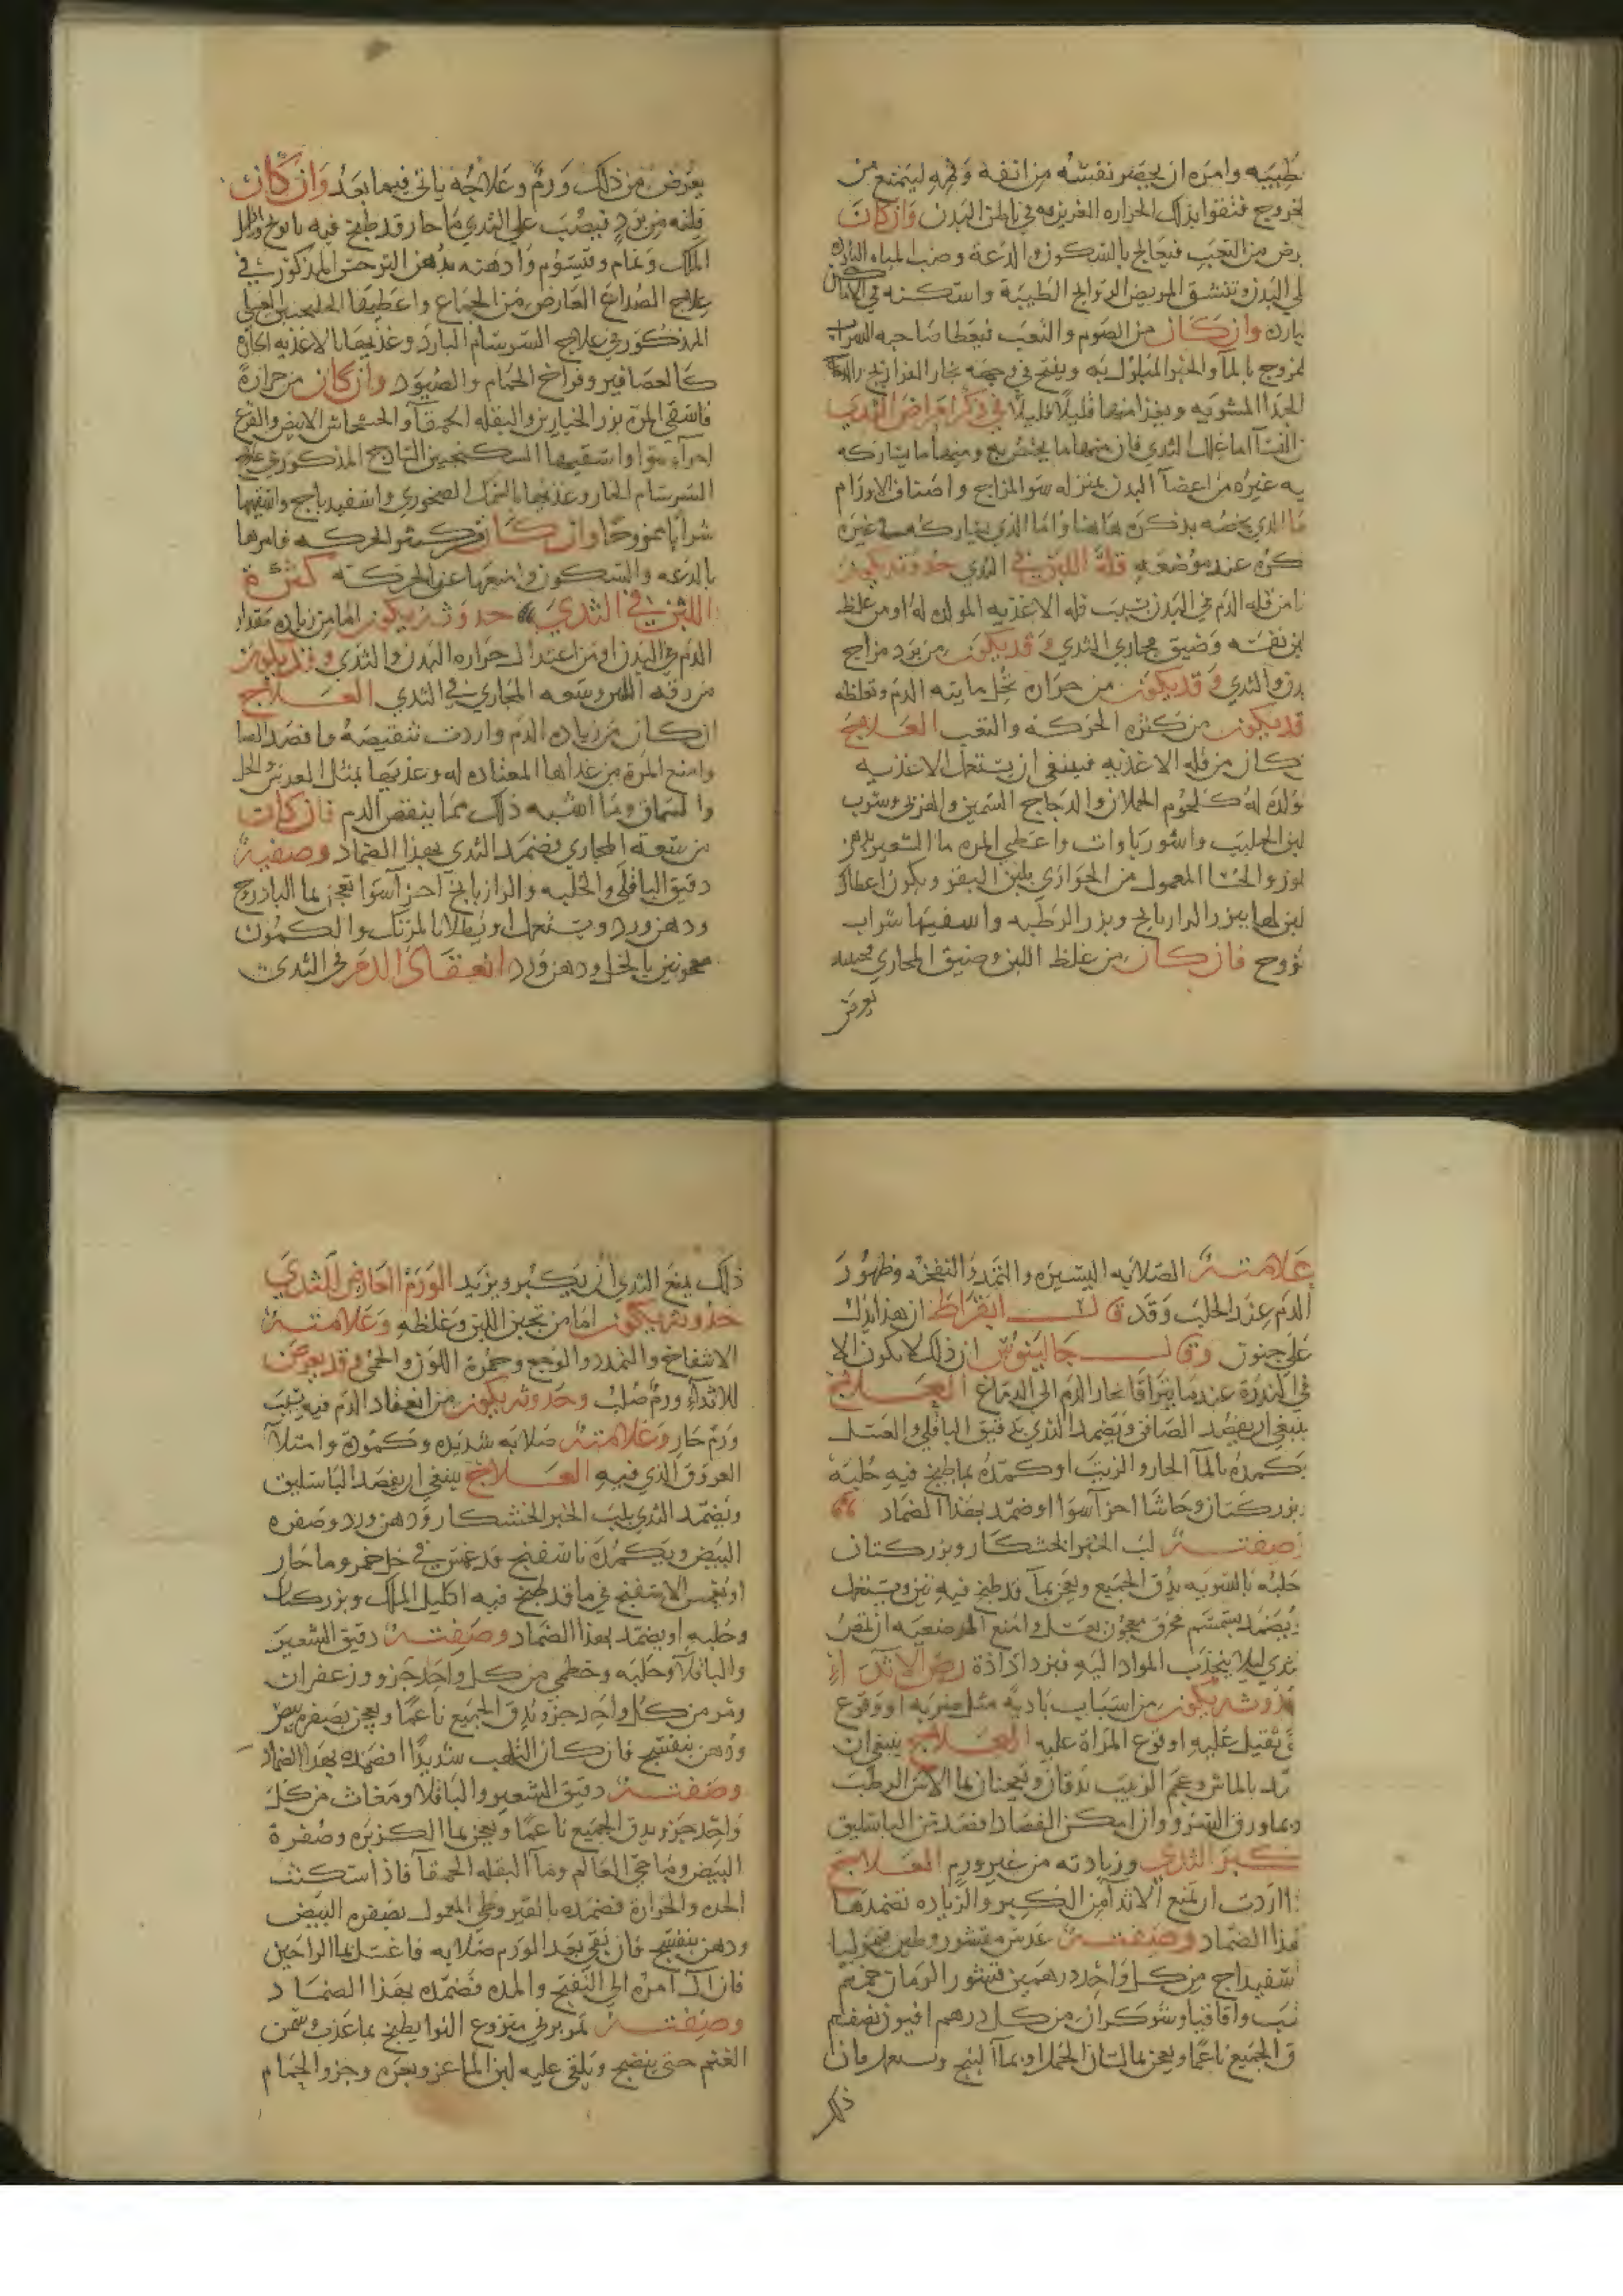 طيبه وامره ان يحصر نفسه من انفه وفمه ليمتنع من
لخروج فتقوا بذلك الحراره الغريزيه في باطن البدن وان كان
رض من التعب فيعالج بالسكون والدعة وضب المياه البارده
لي البدن وتنشق المريض الروايح الطيبة واسكنه في الاماكن
بارده وان كان من الصوم والتعب فيعطا صاحبه الشراب
لمزوج بالمآ والخبز المبلول به ويفتح في وجهه بخار الفراريج
الجدا المشويه ويغذا منها قليلا قليلا في ذكر امراض الثدي
النسآ اما علل الثدي فان منها ما يختص به ومنها ما يشاركه
يه غيره من اعضآ البدن بمنزله سو المزاج واصناف الاورام
ما الذي يخصه يذكره هاهنا واما الذي يشاركه غيره
كره عند موضعه قلة اللبن في الثدي حدوثه يكون
ا من قله الدم في البدن بسبب قله الاغذيه المولده له او من غلظ
لبن نفسه وضيق مجاري الثدي وقد يكون من برد مزاج
بدن والثدي وقد يكون من حراره تحل مايته الدم وتغلظه
قد يكون من كثره الحركه والتعب العلاج
كان من قله الاغذيه فينبغي ان يستعمل الاغذيه
تولده له كلحوم الحملان والدجاج السمين وشرب
لبن الحليب واشورباوات واعطي المره ما الشعير بدهن
لوز والحسا المعمول من الحوارى بلبن البقر ويكون اعطاك
لبن لها ببزر الرازيانج وبزر الرطبه واسقيها شراب
زوج فان كان من غلظ اللبن وضيق المجاري
يعرض
يعرض من ذلك ورم وعلاجه ياتي فيما بعد وان كان
قلته من برد فيصب علي الثدي ما حار قد طبخ فيه بابونج واكليل
الملك ونمام وقيسوم وادهنه بدهن النرجس المذكور في
علاج الصداع العارض من الجماع واعطيها الجلنجبين العسلي
المذكور في علاج السرسام البارد وغذيها بالاغذيه الحاره
كالعصافير وفراخ الحمام والصيود وان كان من حرارة
فاسقي المرة بزر الخيارين والبقله الحمقآ والخشخاش الابيض والقرع
اجزآء سوا واسقيها السكنجبين الساذج المذكور في علاج
السرسام الحار وغذيها بالسمك الصخوري واسفيدباج واسقيها
شرابا ممزوجا وان كان من كثر الحركه فامرها
بالدعه والسكون وامنعها عن الحركته كثرة
اللبن في الثدي حدوثه يكون اما من زياده مقدار
الدم في البدن او من اعتدال حراره البدن والثدي وقد يكون
من رقه اللبن وسعه المجاري في الثدي العلاج
ان كان من زياده الدم واردت تنقيصه فافصد الصا
وامنع المرة من غداها المعتاده له وغذيها بمثل العدس والخل
والسماق وما اشبه ذلك مما ينقص الدم فان كانت
من سعه المجاري فضمد الثدي بهذا الضماد وصفته
دقيق الباقلى والحلبه والرازيانج آجزآ سوا تعجن بما الباذروج
ودهن ورد ويستعمل او يطلا بالمرتك والكمون
معجونين بالخل ودهن ورد انعقاد الدم في الثدي
علامته الصلابه اليسيره والتمدد والنفخه وظهور
الدم عند الحلب وقد قال ابقراط ان هذا يدل
علي جنون وقال جالينوس ان ذلك لا يكون الا
في الندرة عند ما يتراقا بخار الدم الى الدماغ العلاج
ينبغي ان يفصد الصافن ويضمد الثدي بدقيق الباقلي والعسل
يكمده بالمآ الحار والزيت او كمده بما طبخ فيه حلبه
بزر كتان وحاشا اجزآ سوا او ضمد بهذا الضماد
صفته لب الخبز الخشكار وبزر كتان
حلبه بالسويه يدق الجميع ويعجن بمآ قد طبخ فيه تين ويستعمل
يضمد بسمسم محرق معجون بعسل وامنع المرضعه ان تمص
ثدي ليلا ينجذب المواد اليه فيزداد اذة رض الاثدآء
حدوثه يكون من اسباب باديه مثل ضربه او وقوع
ي ثقيل عليه او وقوع المراة عليه العلاج ينبغي ان
رد بالماش وعجم الزبيب يدقان ويعجنان بما الاس الرطب
وبما ورق السرو وان امكن الفصاد افصد من الباسليق
كبر الثدي وزيادته من غير ورم العلاج
ااردت ان تمنع الاثدآ من الكبر والزياده تضمدها
بهذا الضماد وصفته عدس مقشور وطين قيموليا
اسفيداج من كل واحد درهمين قشور الرمان
شب واقاقيا وشوكران من كل درهم افيون نصف
ق الجميع ناعما ويعجن بما لسان الحمل او بمآ البنج ويستعمل فان
ذلك
ذلك يمنع الثدي ان يكبر ويزيد الورم العارض للثدي
حدوثه يكون اما من تجبن اللبن وغلظه وعلامته
الانتفاخ والتمدد والوجع وحمرة اللون والحمى وقد يعرض
للاثدآء ورم صلب وحدوثه يكون من انعقاد الدم فيه بسبب
ورم حار وعلامته صلابه شديده وكموده وامتلآ
العروق الذي فيه العلاج ينبغي ان يفصد الباسليق
ويضمد الثدي بلب الخبز الخشكار ودهن ورد وصفره
البيض ويكمده باسفنج قد غمس في خل خمر وما حار
او يغمس الاسفنج في ما قد طبخ فيه اكليل الملك وبزر كتان
وحلبه او يضمد بهذا الضماد وصفته دقيق الشعير
والباقلآ وحلبه وخطمي من كل واحد جزو وزعفران
ومر من كل واحد جزو يدق الجميع ناعما ويعجن بصفره بيض
ودهن بنفسج فان كان التلهب شديدا فضمده بهذا الضماد
وصفته دقيق الشعير والباقلا ومغاث من كل
واحد جزو يدق الجميع ناعما ويعجن بما الكزبره وصفرة
البيض وما حي العالم ومآ البقله الحمقآ فاذا سكنت
الحده والحرارة فضمده بالقيروطي المعمول بصفره البيض
ودهن بنفسج فان بقي بعد الورم صلابه فاغسل بما الراحين
فان آل امره الى التفتح والمده فضمده بهذا الضماد
وصفته تمر برني منزوع النوا يطبخ بما عذب وسمن
الغنم حتى ينضج ويلقى عليه لبن الماعز وبعره وخرو الحمام